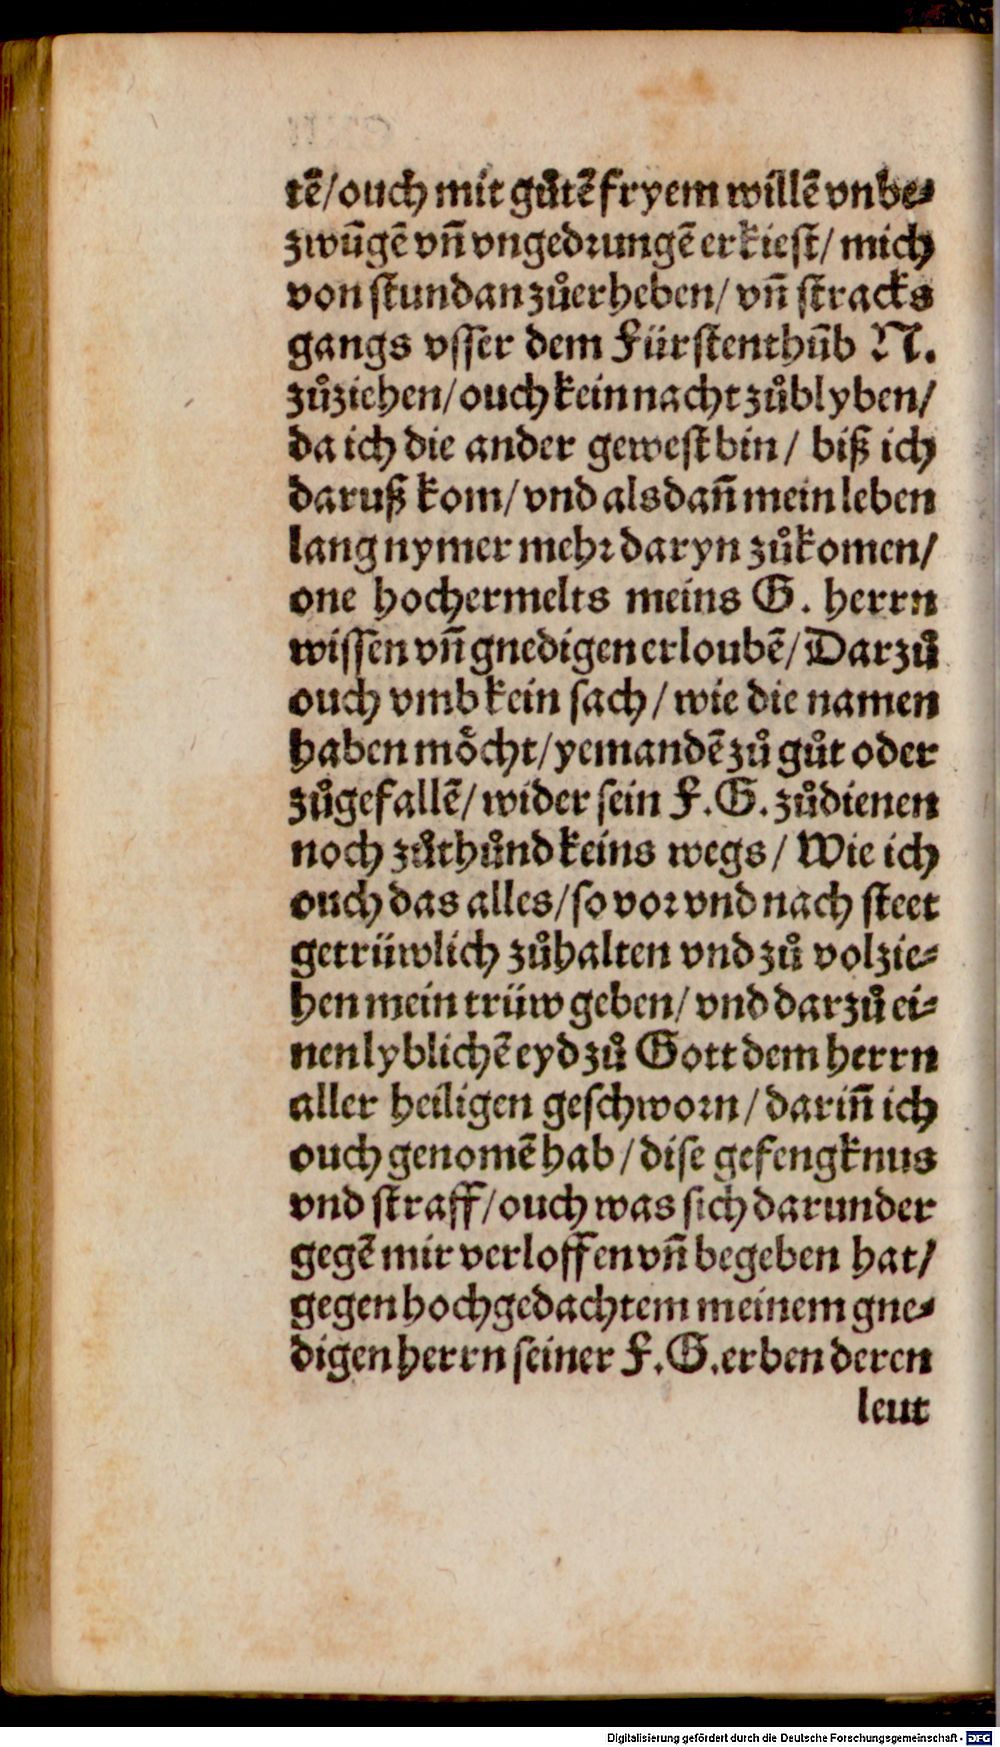 tẽ/ouch mit gůtẽ fryem willẽ vnbe⸗
zwũgẽ vñ vngedrungẽ erkiest/ mich
von stundan zůerheben/ vñ stracks
gangs vsser dem Fürstenthũb N.
zůziehen/ouch kein nacht zůblyben/
da ich die ander gewest bin/ biß ich
daruß kom/vnd alsdañ mein leben
lang nymer mehr daryn zůkomen/
one hochermelts meins G. herrn
wissen vñ gnedigen erloubẽ/Darzů
ouch vmb kein sach/wie die namen
haben moͤcht/yemandẽ zů gůt oder
zůgefallẽ/wider sein F.G. zůdienen
noch zůthůnd keins wegs/ Wie ich
ouch das alles/so vor vnd nach steet
getrüwlich zůhalten vnd zů volzie⸗
hen mein trüw geben/vnd darzů ei⸗
nen lyblichẽ eyd zů Gott dem herrn
aller heiligen geschworn/dariñ ich
ouch genomẽ hab/dise gefengknus
vnd straff/ouch was sich darunder
gegẽ mir verloffen vñ begeben hat/
gegen hochgedachtem meinem gne⸗
digen herrn seiner F.G.erben deren
leut
Digitalisierung gefördert durch die Deutsche Forschungsgemeinschaft - DFG